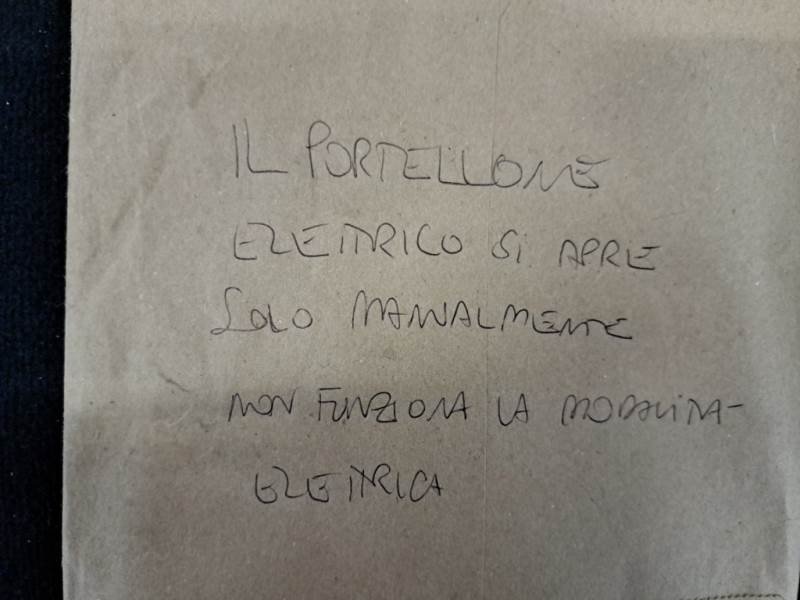 IL PORTELLONE
ELETTRICO SI APRE
SOLO MANUALMENTE
NON FUNZIONA LA MODALITA-
ELETTRICA